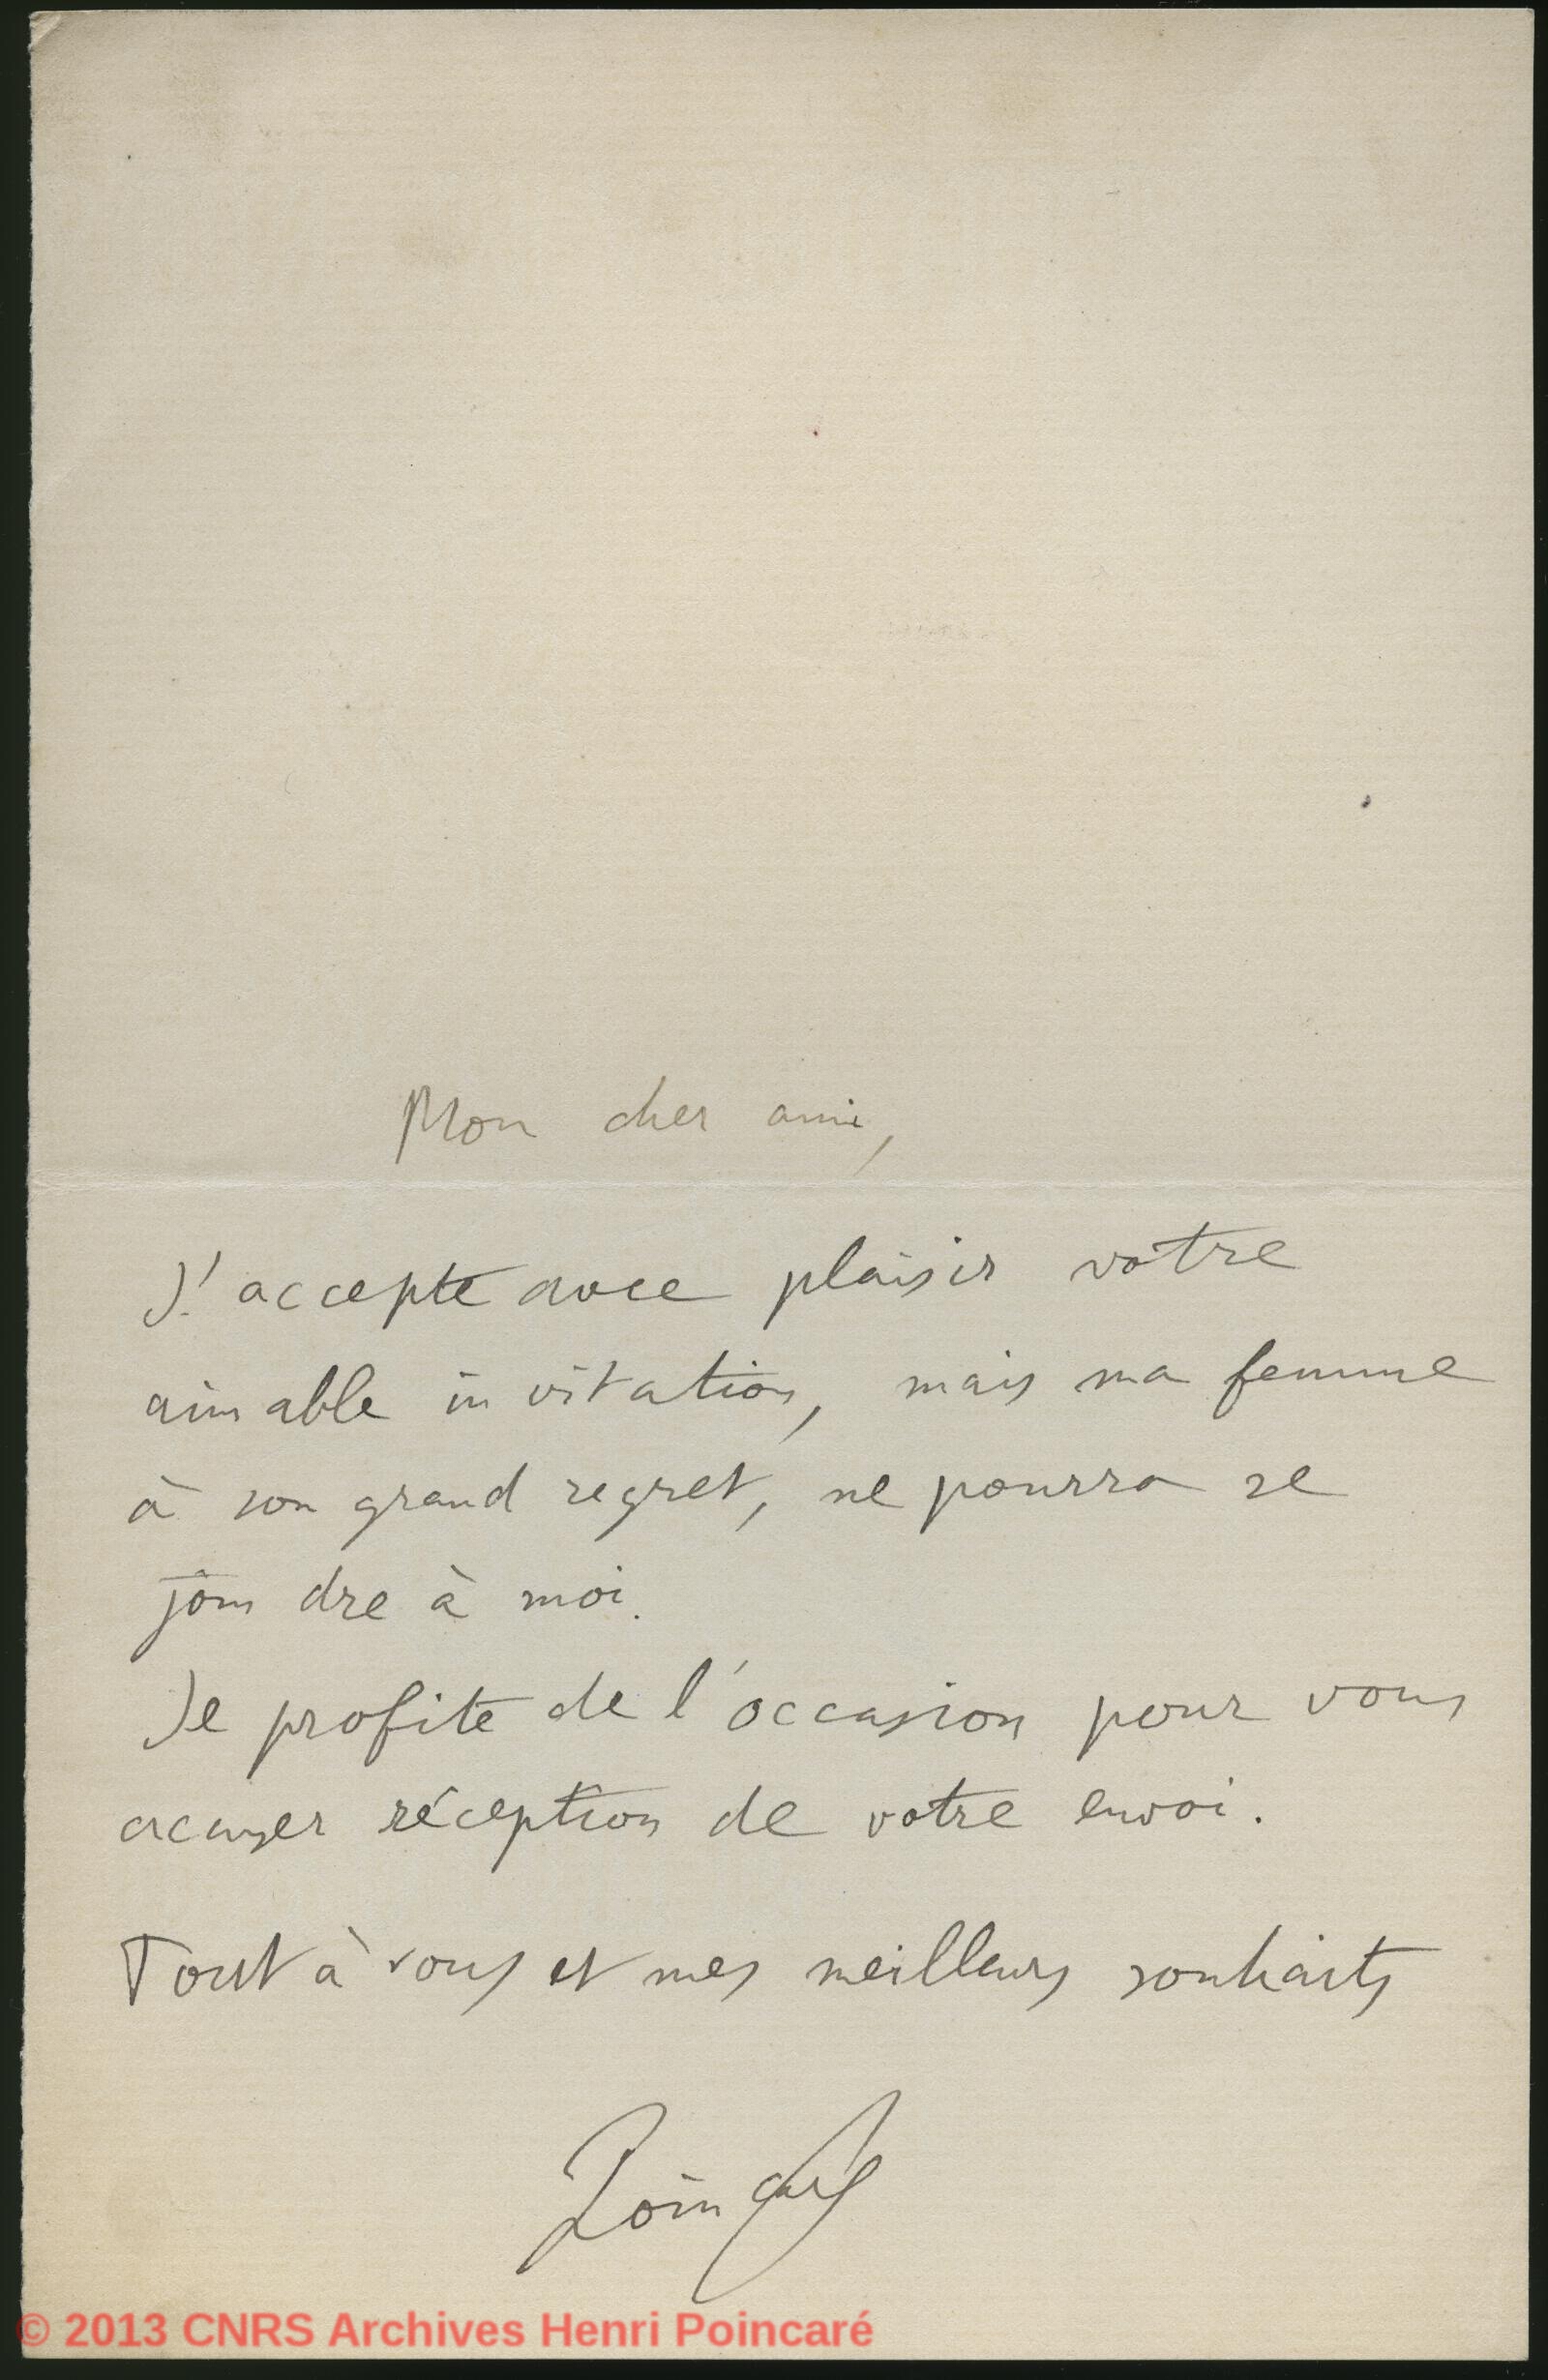 Mon cher ami,
J'accepte avec plaisir votre
aimable invitation, mais ma femme
à son grand regret, ne pourra se
joindre à moi.
Je profite de l'occasion pour vous
accuser réception de votre envoi.
Tout à vous et mes meilleurs souhaits
Poincaré
© 2013 CNRS Archives Henri Poincaré